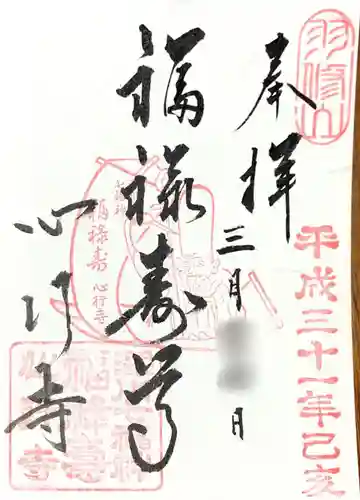 羽修山
平成三十一年己亥
奉拝
三月 日
福禄寿尊
福禄寿
心行寺
心行寺